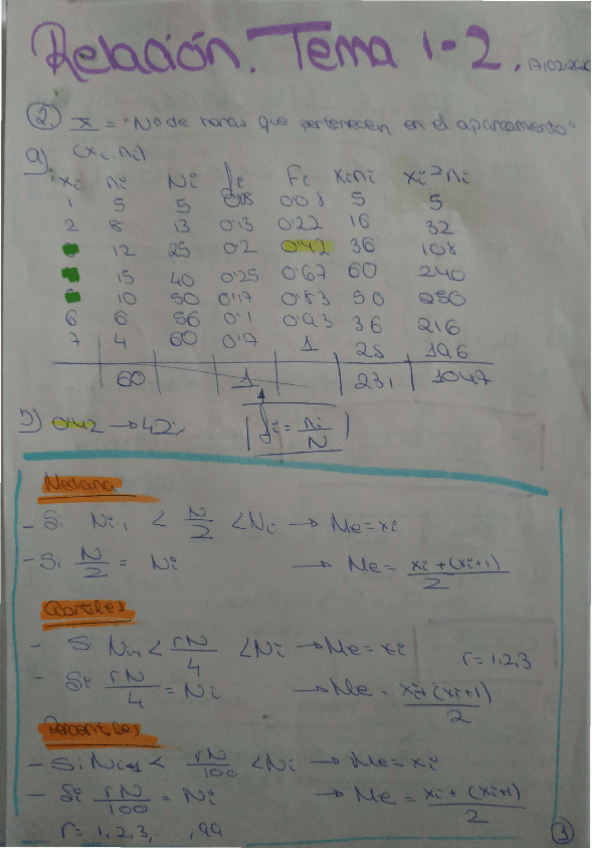 Relación. Tema 1-2.
② x = "No de horas que pertenecen en el aparcamiento"
a) (xi, ni)
xi ni Ni fi Fi xini xi²ni
1 5 5 0'08 0'08 5 5
2 8 13 0'13 0'22 16 32
12 25 0'2 0'42 36 108
15 40 0'25 0'67 60 240
10 50 0'17 0'83 50 250
6 6 56 0'1 0'93 36 216
7 4 60 1 28 196
60 1 231 1047
b) 0'42 → 42% fi = ni/N
Mediana
- Si Ni-1 < N/2 < Ni → Me = xi
- Si N/2 = Ni → Me = xi + (xi+1)/2
Cuartiles
- Si Ni-1 < rN/4 < Ni → Me = xi r = 1,2,3
- Si rN/4 = Ni → Me = xi + (xi+1)/2
Percentiles
- Si Ni-1 < rN/100 < Ni → Me = xi
- Si rN/100 = Ni → Me = xi + (xi+1)/2
r = 1,2,3, ,99
①